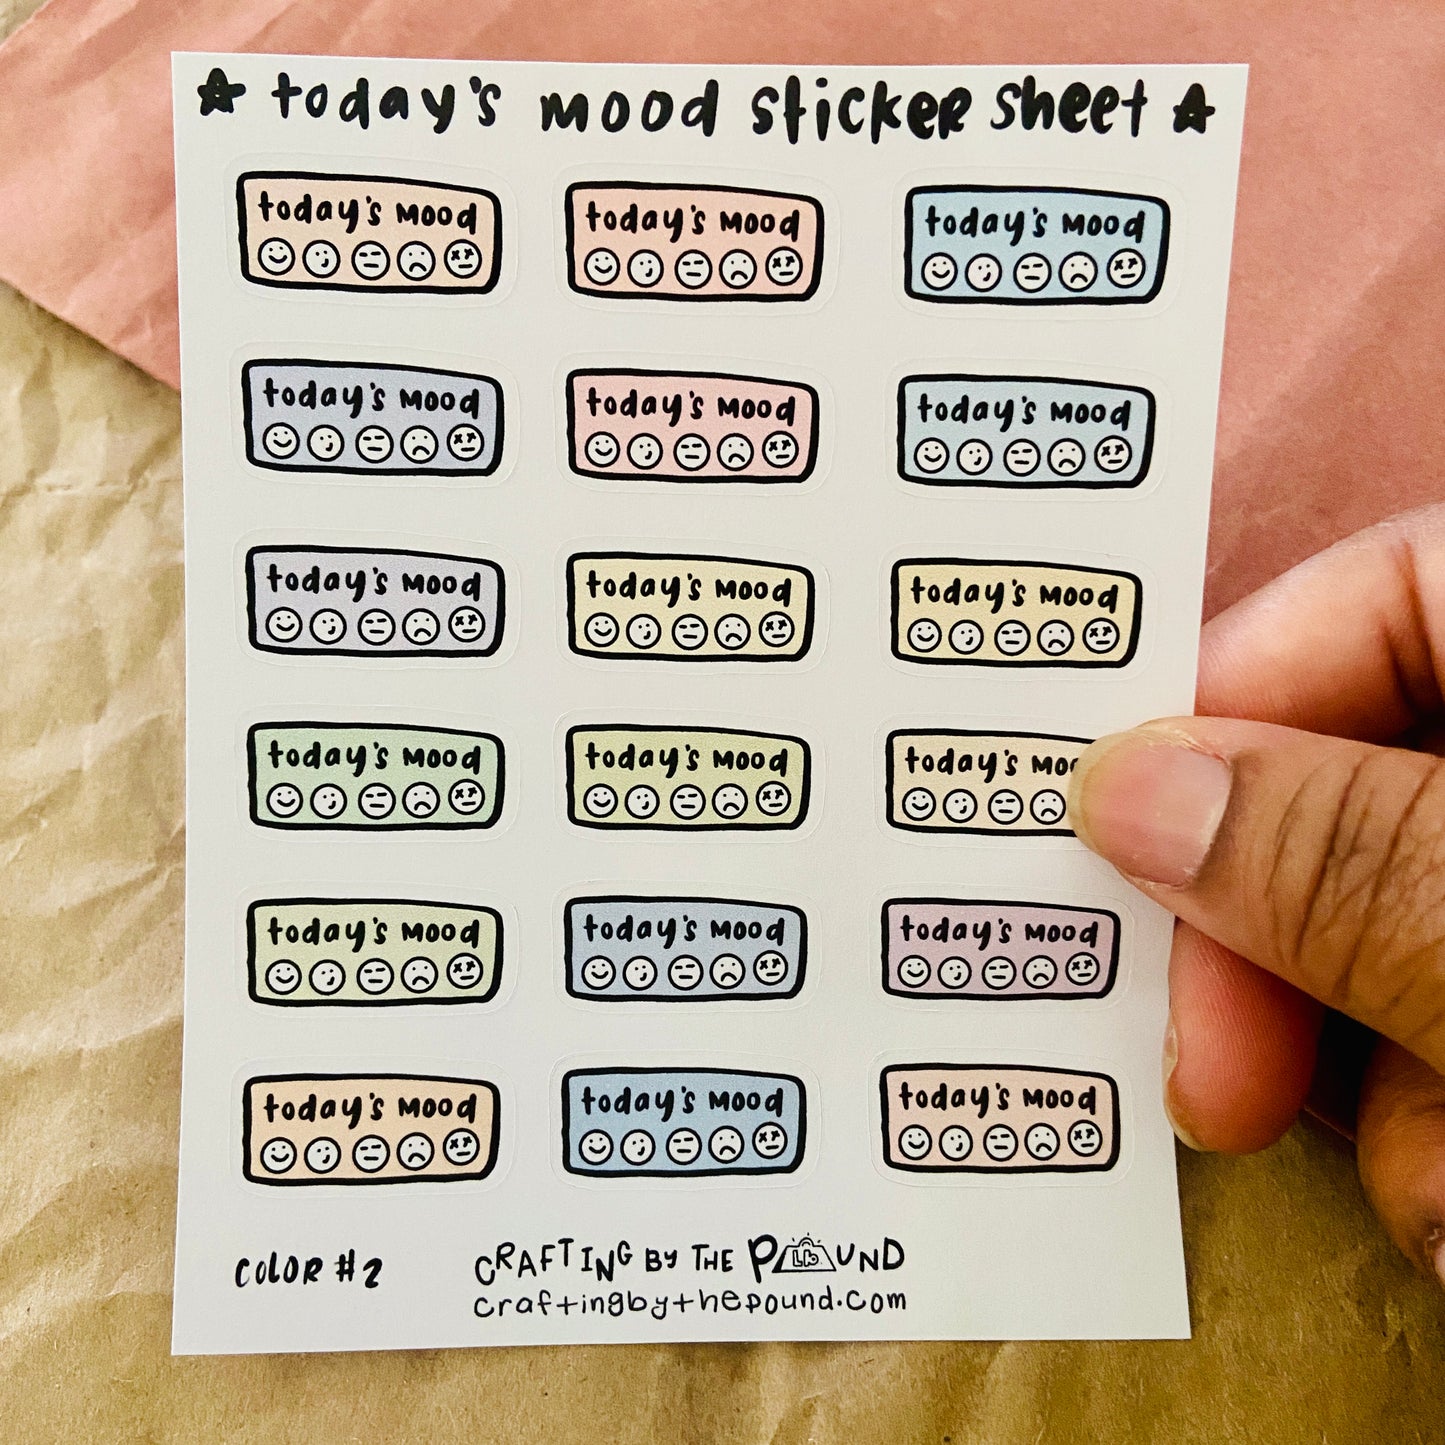 today's mood sticker sheet
today's mood
today's mood
today's mood
today's mood
today's mood
today's mood
today's mood
today's mood
today's mood
today's mood
today's mood
today's moo
today's mood
today's mood
today's mood
today's mood
today's mood
today's mood
COLOR #2
CRAFTING BY THE POUND
craftingbythepound.com